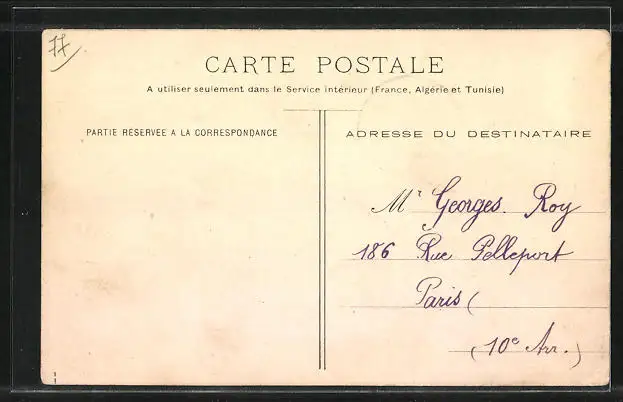 77
CARTE POSTALE
A utiliser seulement dans le Service intérieur (France, Algérie et Tunisie)
PARTIE RÉSERVÉE A LA CORRESPONDANCE
ADRESSE DU DESTINATAIRE
Mr Georges. Roy
186 Rue Pelleport
Paris (
(10e Arr.)